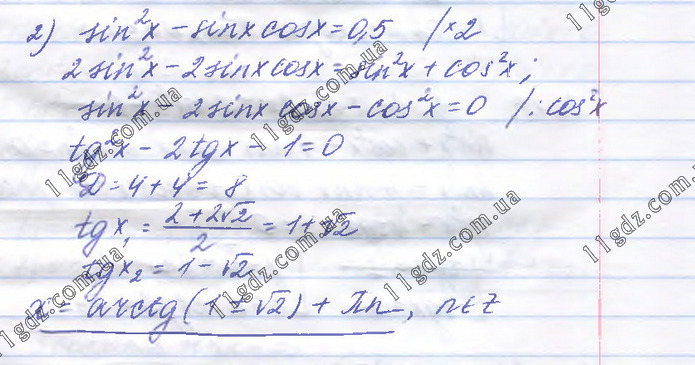 2) sin²x - sinx cosx = 0,5 /×2
2sin²x - 2sinx cosx = sin²x + cos²x;
sin²x - 2sinx cosx - cos²x = 0 /: cos²x
tg²x - 2tgx - 1 = 0
D = 4 + 4 = 8
tgx₁ = (2 + 2√2)/2 = 1 + √2
tgx₂ = 1 - √2
x = arctg(1 ± √2) + πn, n ∈ Z
11gdz.com.ua
11gdz.com.ua
11gdz.com.ua
11gdz.com.ua
11gdz.com.ua
11gdz.com.ua
11gdz.com.ua